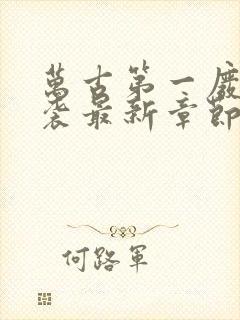 萬古第一廢
裘最新章節
何路軍